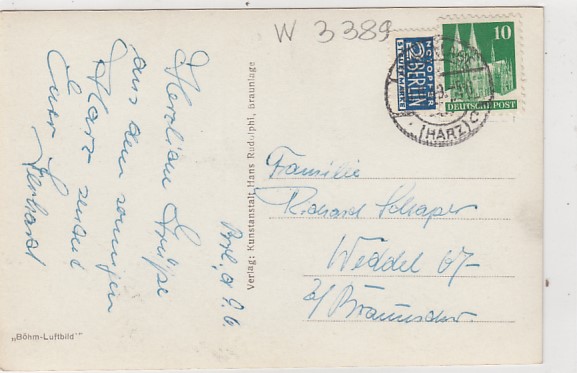 W 3389
NOTOPFER
2
BERLIN
STEUERMARKE
10
DEUTSCHE POST
(HARZ) C
Herzlichen Grüße
aus dem sonnigen
Harz sendet
Euer
Brl. d. 9.6.
Verlag: Kunstanstalt Hans Rudolphi, Braunlage
Familie
Richard Schaper
Weddel 07-
b/ Braunschw.
„Böhm-Luftbild"